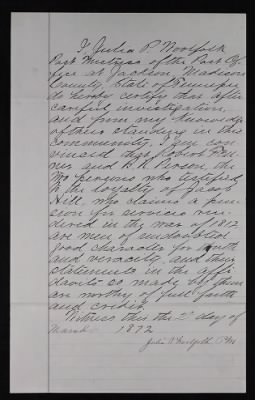 I, Julia P. Woolfolk
Post Mistress of the Post Of-
fice at Jackson, Madison
County, State of Tennessee
do hereby certify that after
careful investigation
and from my knowledge
of their standing in this
community, I am con-
vinced that Robert
and the
two persons who certified
to the loyalty of Jacob
Hill, who claims a pen-
sion for services ren-
dered in the war of 1812
are men of undoubted
good character for truth
and veracity, and their
statements in the affi
davits so made by them
are worthy of full faith
and credit.
Witness this the 2d day of
March 1872
Julia P. Woolfolk P.M.